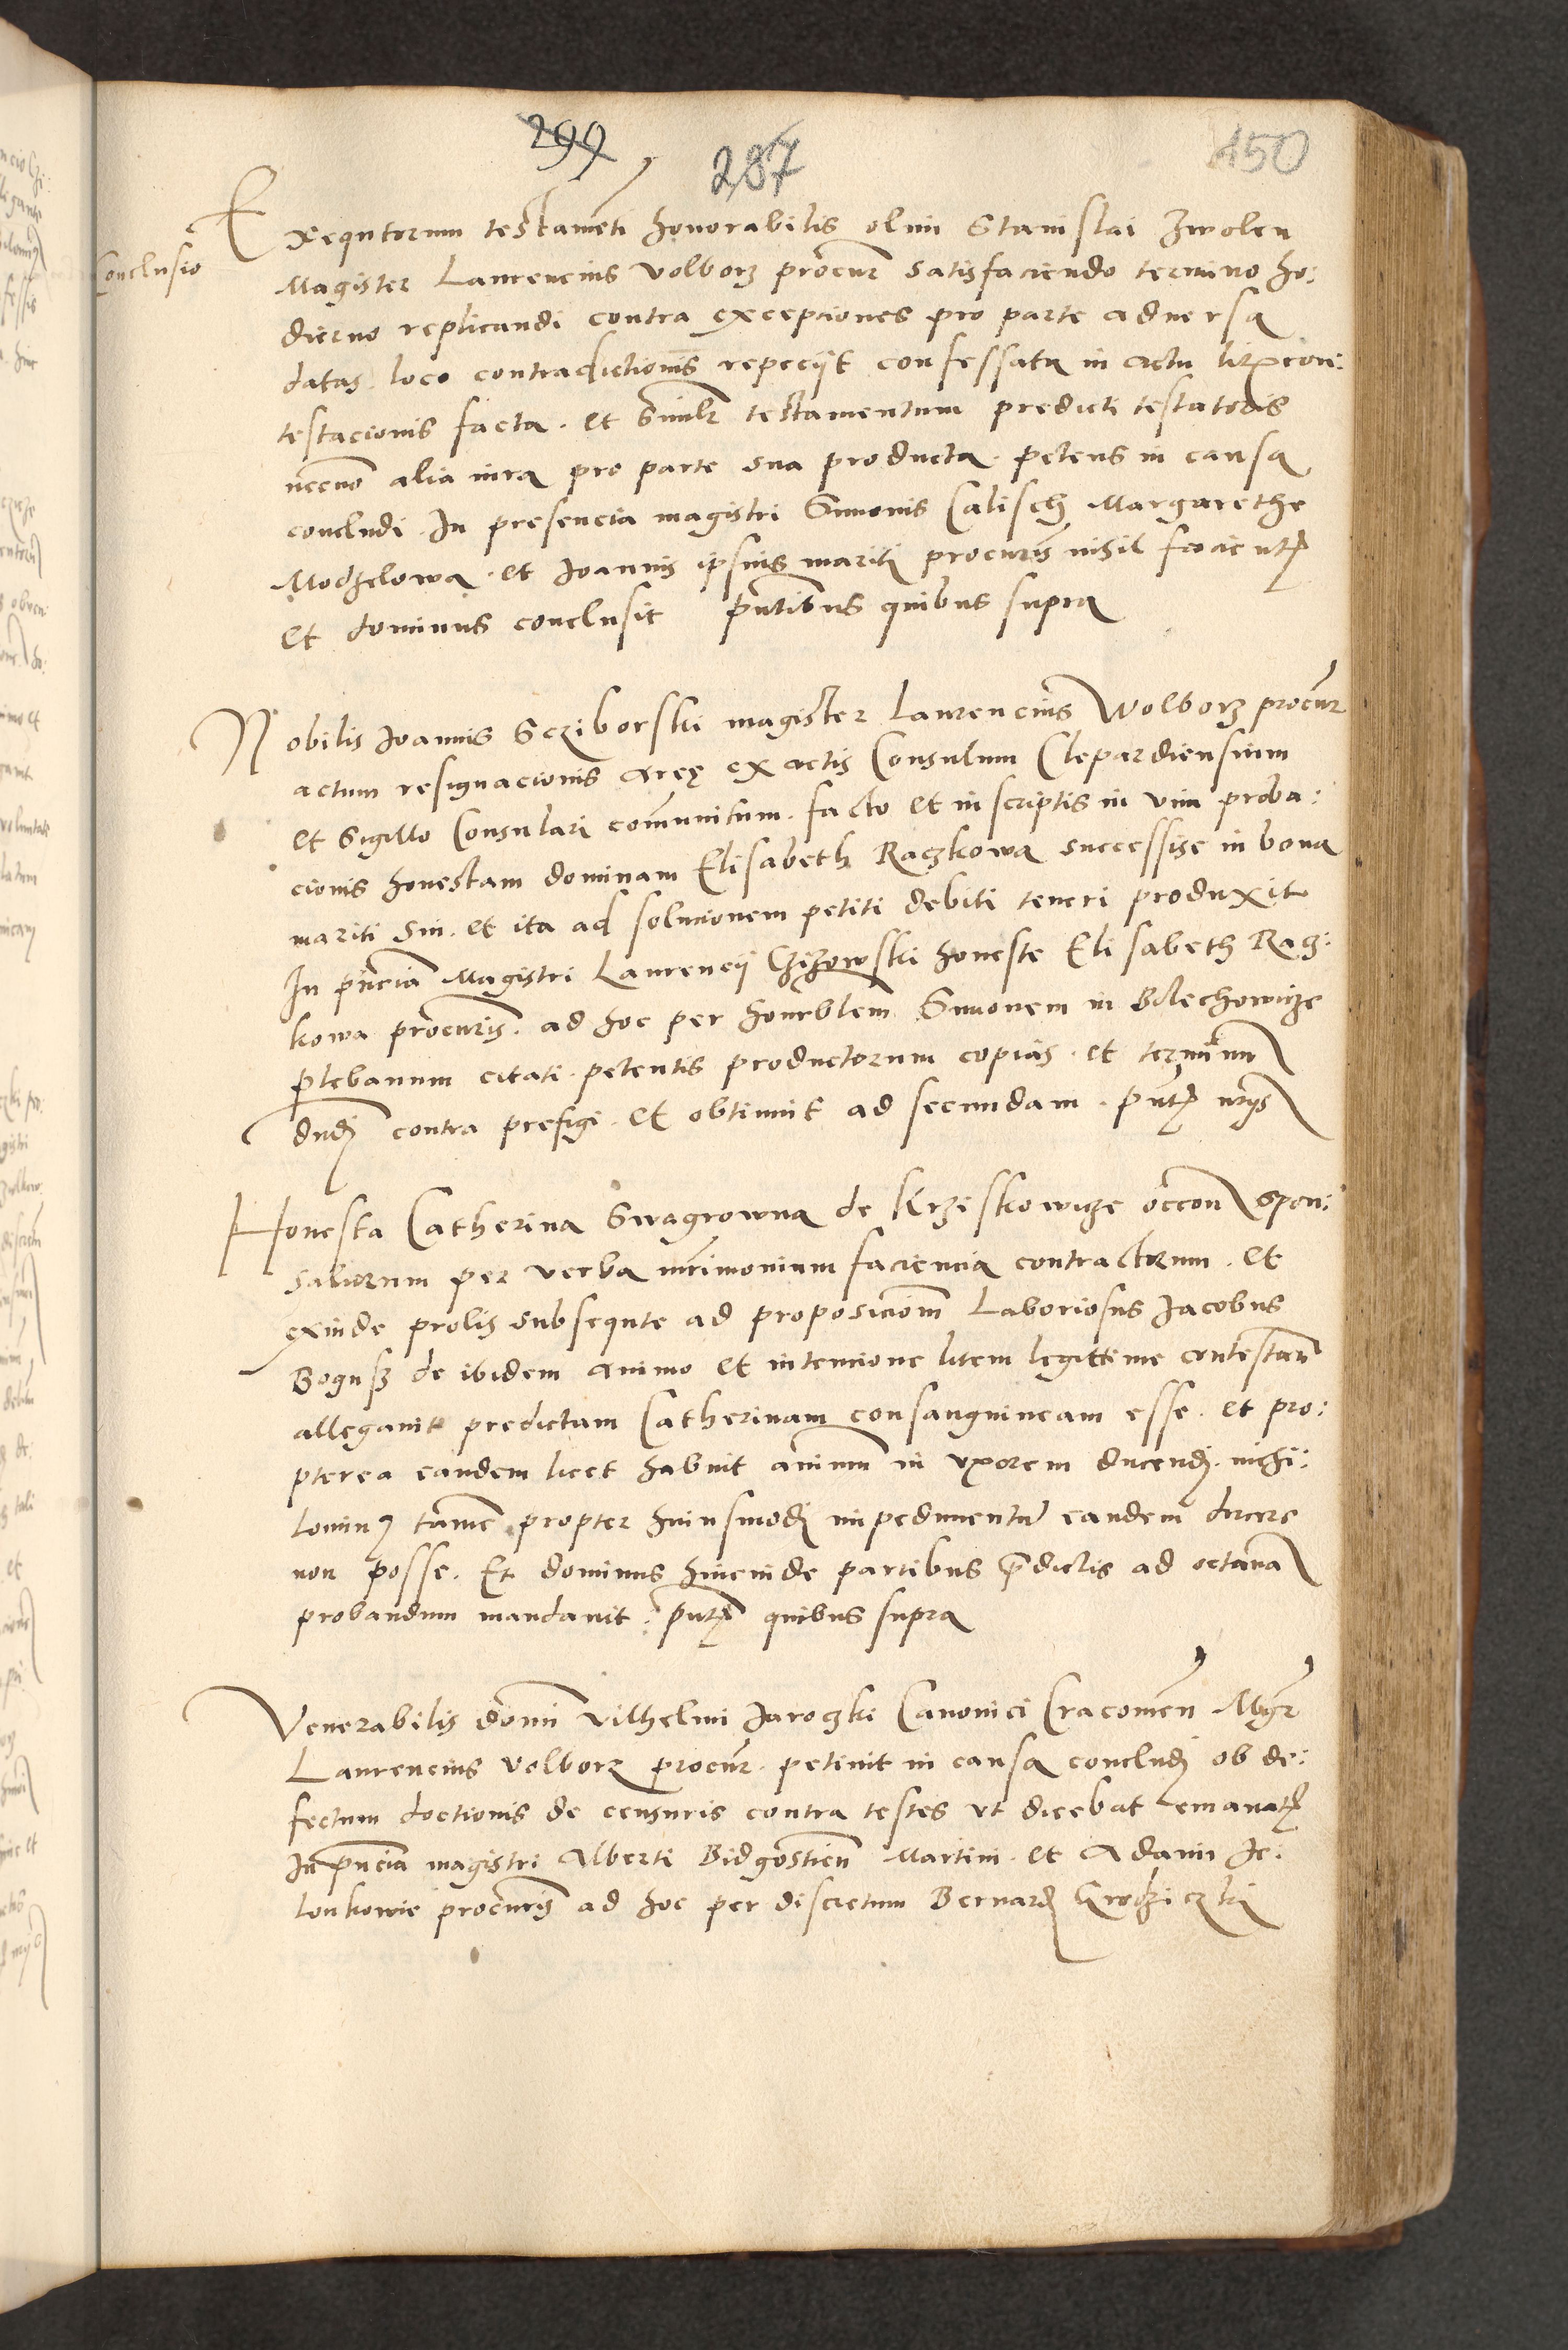 299
287
450
Exequtorum testameti honorabilis olim Stanislai Zwolen
Conclusio
Magister Laurencius Volborz procur satisfaciendo termino ho:
dierno replicandi contra excepciones pro parte adversa
datas. loco contradictionis repeciit confessata in actu litis con:
testacionis facta. et similr testamentum predicti testatoris
necno alia iura pro parte sua producta. petens in causa
concludi. In presencia magistri Simonis Calisch Margarethe
Modzelowa. et Joannis ipsius mariti procuris nihil facient
et dominus conclusit pntibus quibus supra
Nobilis Joannis Scziborski magister Laurencius Wolborz procur
actum resignacionis aree ex actis Consulum Clepardiensium
et Sigillo Consulari communitum. facto et in scriptis in vim proba:
cionis honestam dominam Elisabeth Raczkowa successise in bona
mariti sui. et ita ad solucionem petiti debiti teneri produxit
In pncia Magistri Laurencii Czizowski honeste Elisabeth Racz:
kowa procuris. ad hoc per honrblem Simonem in Bolechowicze
plebanum citati. petentis productorum copias. et terminu
dndi contra prefigi. et obtinuit ad secundam. pnt
Honesta Catherina Swagrowna de Krzeskowicze occon spon:
saliorum per verba mrimonium faciencia contractorum. et
exinde prolis subsequte ad proposiciom Laboriosus Jacobus
Bogusz de ibidem animo et intencione litem legittime contestan
allegavit predictam Catherinam consanguineam esse. et pro:
pterea eandem licet habuit animu in uxorem ducendi. nichi:
lominus tame propter huiusmodi impedimentu eandem ducere
non posse. Et dominus hincinde partibus pdictis ad octava
probandum mandavit: pnt quibus supra
Venerabilis domi Vilhelmi Jaroczki Canonici Cracovien Mgr
Laurencius Volborz procur. petivit in causa concludi ob de:
fectum doctionis de censuris contra testes ut dicebat emanat
In pncia magistri Alberti Bidgostien Martini. et Adami Je:
lonkowie procuris ad hoc per discretum Bernard Grodziczki